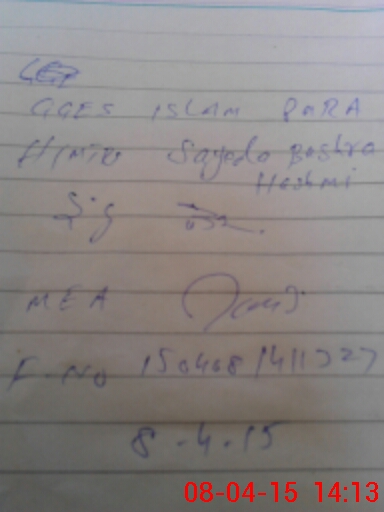 GGES ISLAM PARA
H/M/T Sayeda Bushra
Hashmi
Sig
MEA
F-No 1504081411727
8.4.15
08-04-15 14:13